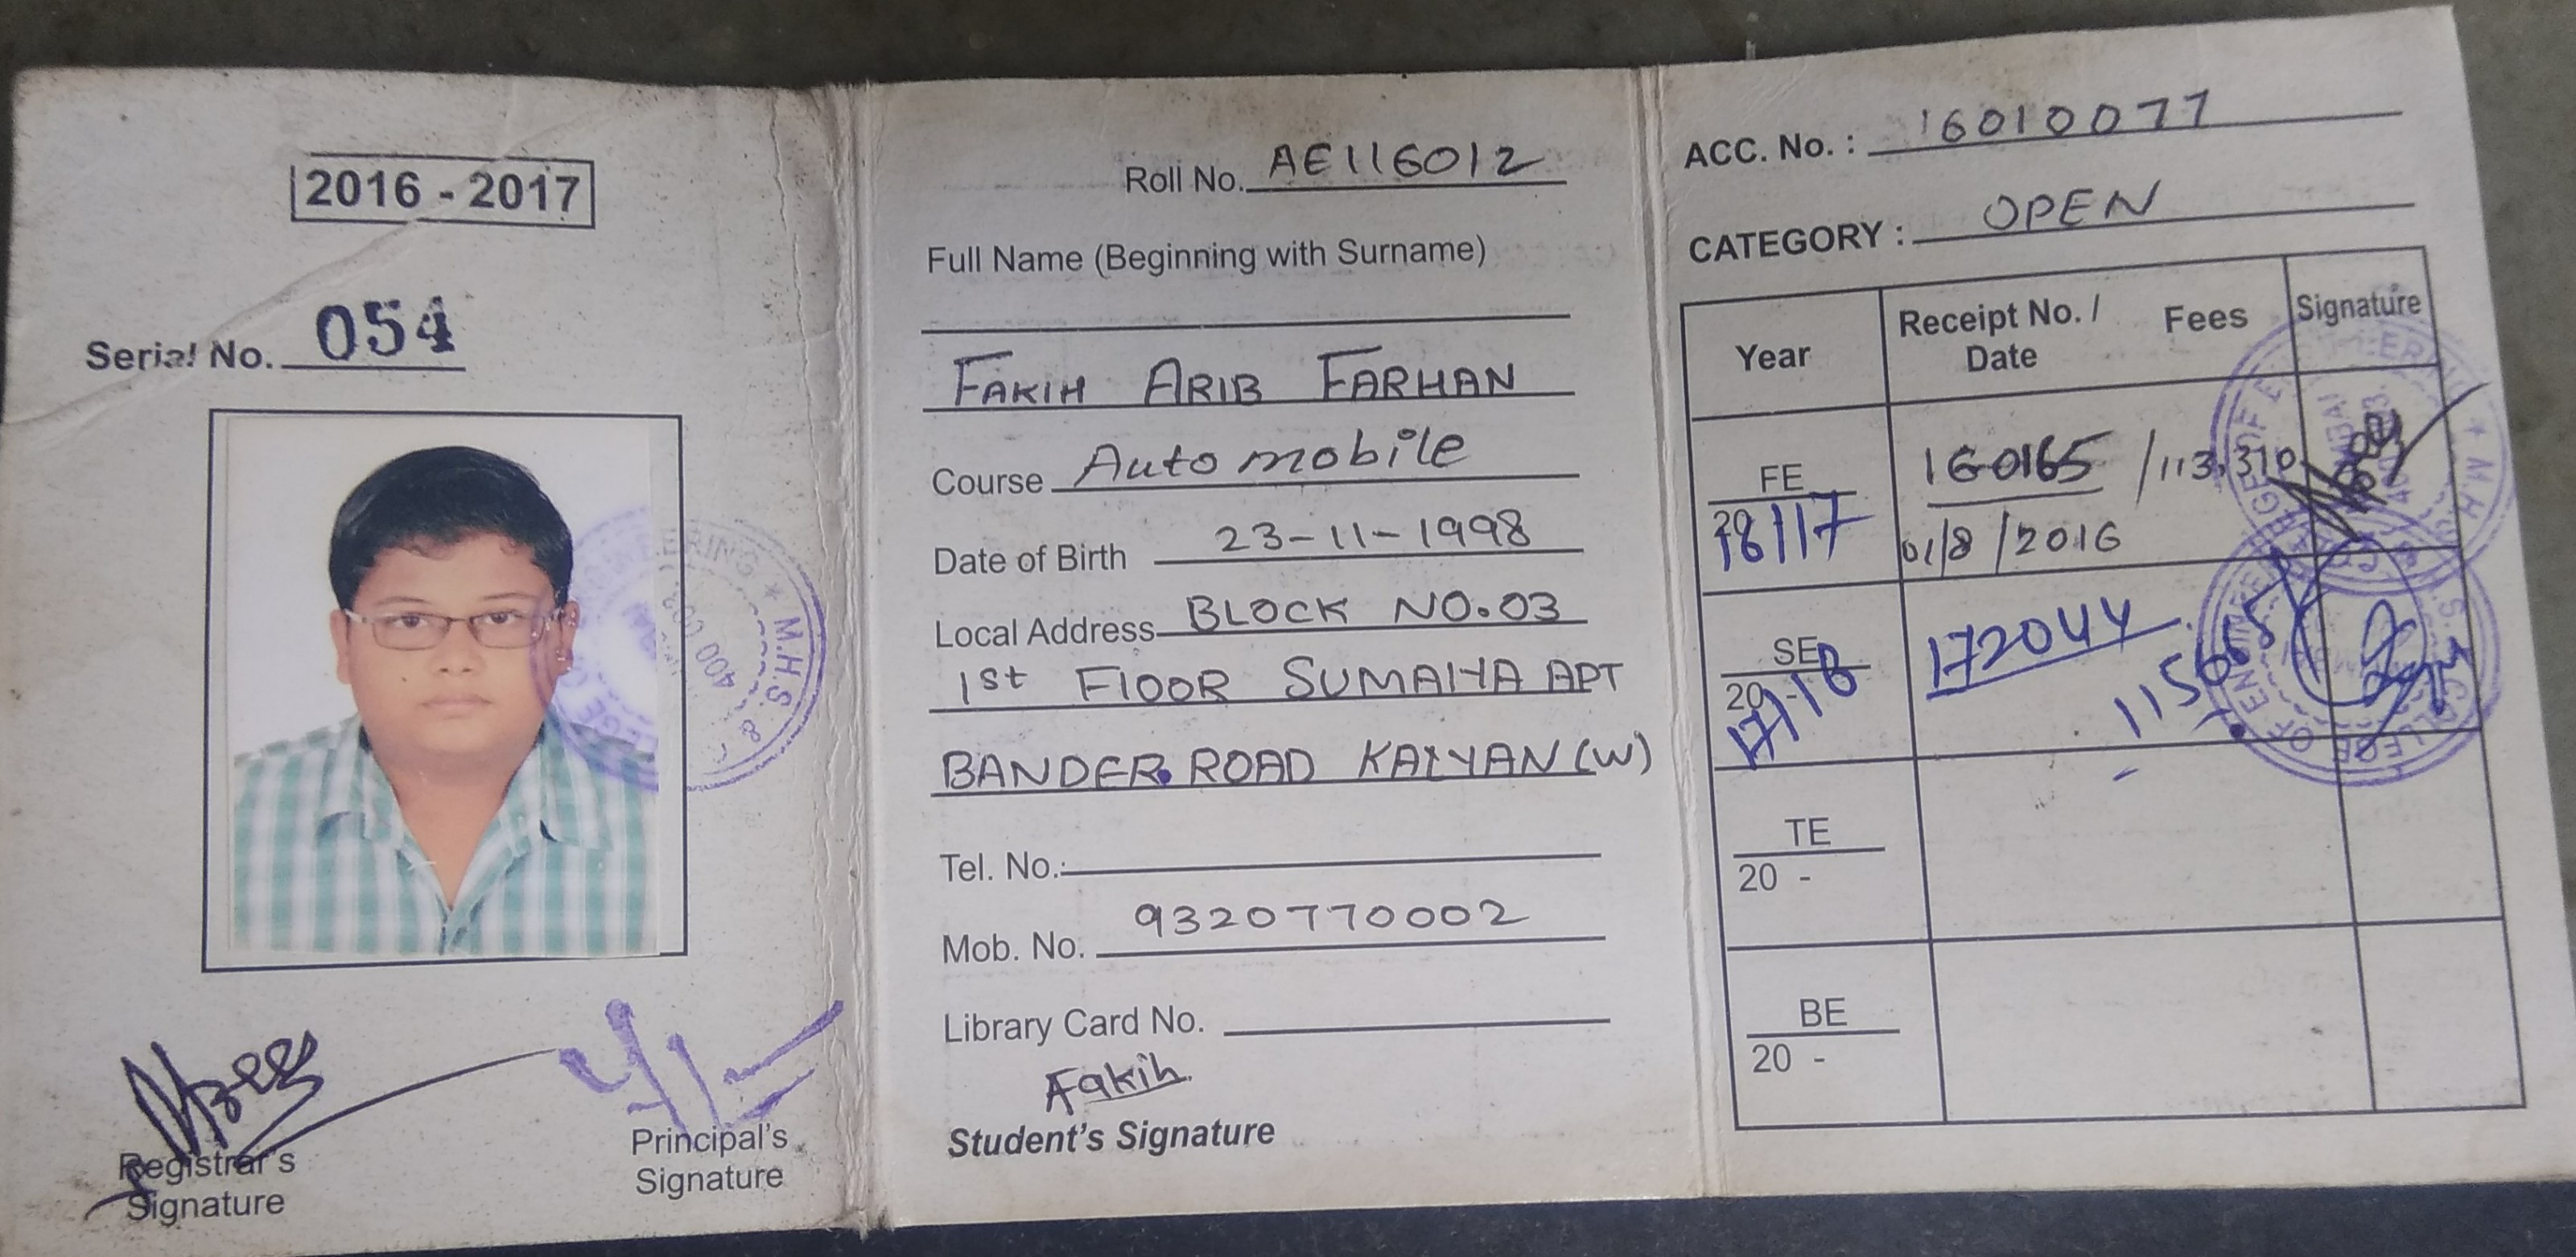 2016 - 2017
Serial No. 054
ERING * M.H.S.
400
Registrar's
Signature
Principal's
Signature
Roll No. AE116012
Full Name (Beginning with Surname)
FAKIH ARIB FARHAN
Course Automobile
Date of Birth 23-11-1998
Local Address BLOCK NO.03
1st FLOOR SUMAIYA APT
BANDER ROAD KALYAN (W)
Tel. No.:
Mob. No. 9320770002
Library Card No.
Fakih
Student's Signature
ACC. No. : 16010077
CATEGORY : OPEN
Year Receipt No. / Date Fees Signature
FE 20 16/17 160165 / 113,310
01/8/2016
SE 20 - 17/18 172044
TE
20 -
BE
20 -